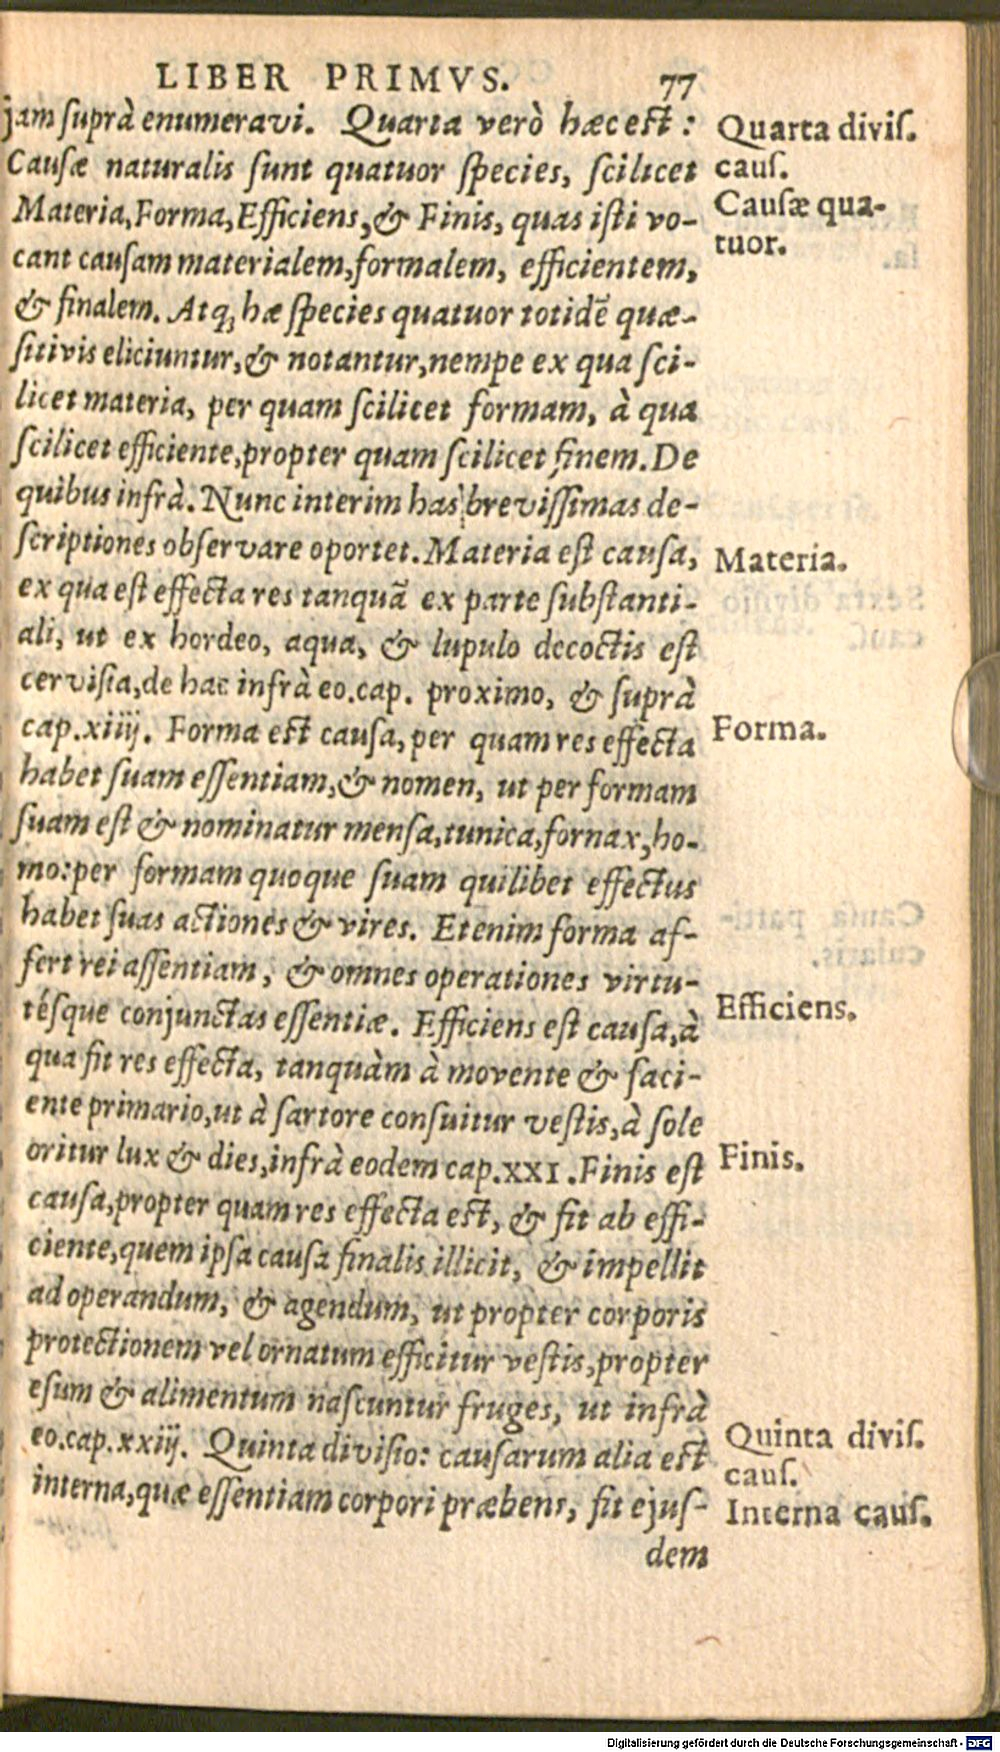 LIBER PRIMVS. 77
jam suprà enumeravi. Quarta verò hæc est:
Causæ naturalis sunt quatuor species, scilicet
Materia, Forma, Efficiens, & Finis, quas isti vo-
cant causam materialem, formalem, efficientem,
& finalem. Atq; hæ species quatuor totidē quæ-
sitivis eliciuntur, & notantur, nempe ex qua sci-
licet materia, per quam scilicet formam, à qua
scilicet efficiente, propter quam scilicet finem. De
quibus infrà. Nunc interim has brevissimas de-
scriptiones observare oportet. Materia est causa,
ex qua est effecta res tanquã ex parte substanti-
ali, ut ex hordeo, aqua, & lupulo decoctis est
cervisia, de hac infrà eo. cap. proximo, & suprà
cap. xiiij. Forma est causa, per quam res effecta
habet suam essentiam, & nomen, ut per formam
suam est & nominatur mensa, tunica, fornax, ho-
mo: per formam quoque suam quilibet effectus
habet suas actiones & vires. Etenim forma af-
fert rei assentiam, & omnes operationes virtu-
tésque conjunctas essentiæ. Efficiens est causa, à
qua fit res effecta, tanquàm à movente & faci-
ente primario, ut à sartore consuitur vestis, à sole
oritur lux & dies, infrà eodem cap. XXI. Finis est
causa, propter quam res effecta est, & fit ab effi-
ciente, quem ipsa causa finalis illicit, & impellit
ad operandum, & agendum, ut propter corporis
protectionem vel ornatum efficitur vestis, propter
esum & alimentum nascuntur fruges, ut infrà
eo. cap. xxiij. Quinta divisio: causarum alia est
interna, quæ essentiam corpori præbens, fit ejus-
dem
Quarta divis.
caus.
Causæ qua-
tuor.
Materia.
Forma.
Efficiens.
Finis.
Quinta divis.
caus.
Interna caus.
Digitalisierung gefördert durch die Deutsche Forschungsgemeinschaft - DFG